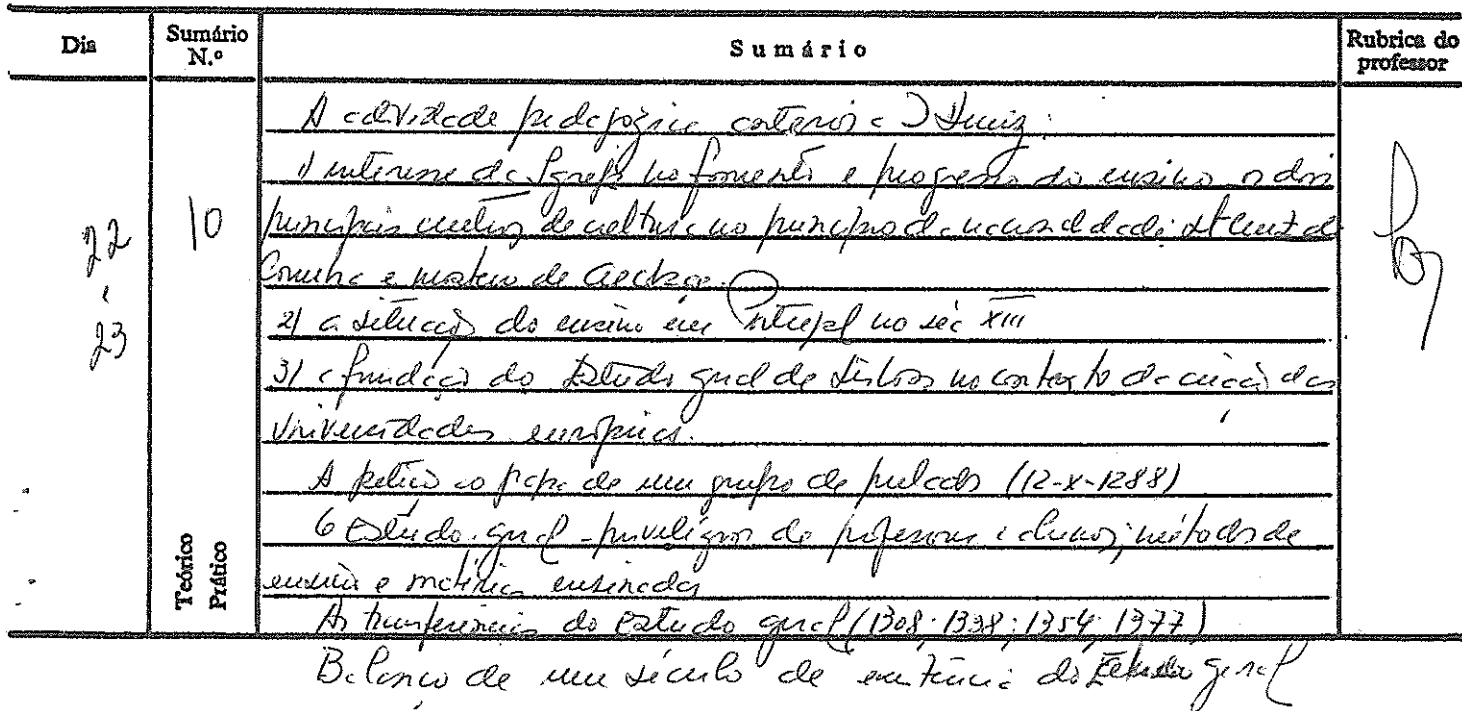 Dia
Sumário N.º
Sumário
Rubrica do professor
22 e 23
10
A actividade pedagógica anterior a D. Diniz:
1) interesse da Igreja no fomento e progresso do ensino os dois
principais centros de cultura no princípio da nacionalidade: Sta Cruz de
Coimbra e mosteiro de Alcobaça.
2) a situação do ensino em Portugal no séc XIII
3) a fundação do Estudo geral de Lisboa no contexto da criação das
Universidades europeias.
A petição ao papa de um grupo de prelados (12-X-1288)
O Estudo geral - privilégios de professores e alunos; métodos de
ensino e matérias ensinadas
As transferências do Estudo geral (1308; 1338; 1354; 1377)
Balanço de um século de existência do Estudo geral
Teórico
Prático